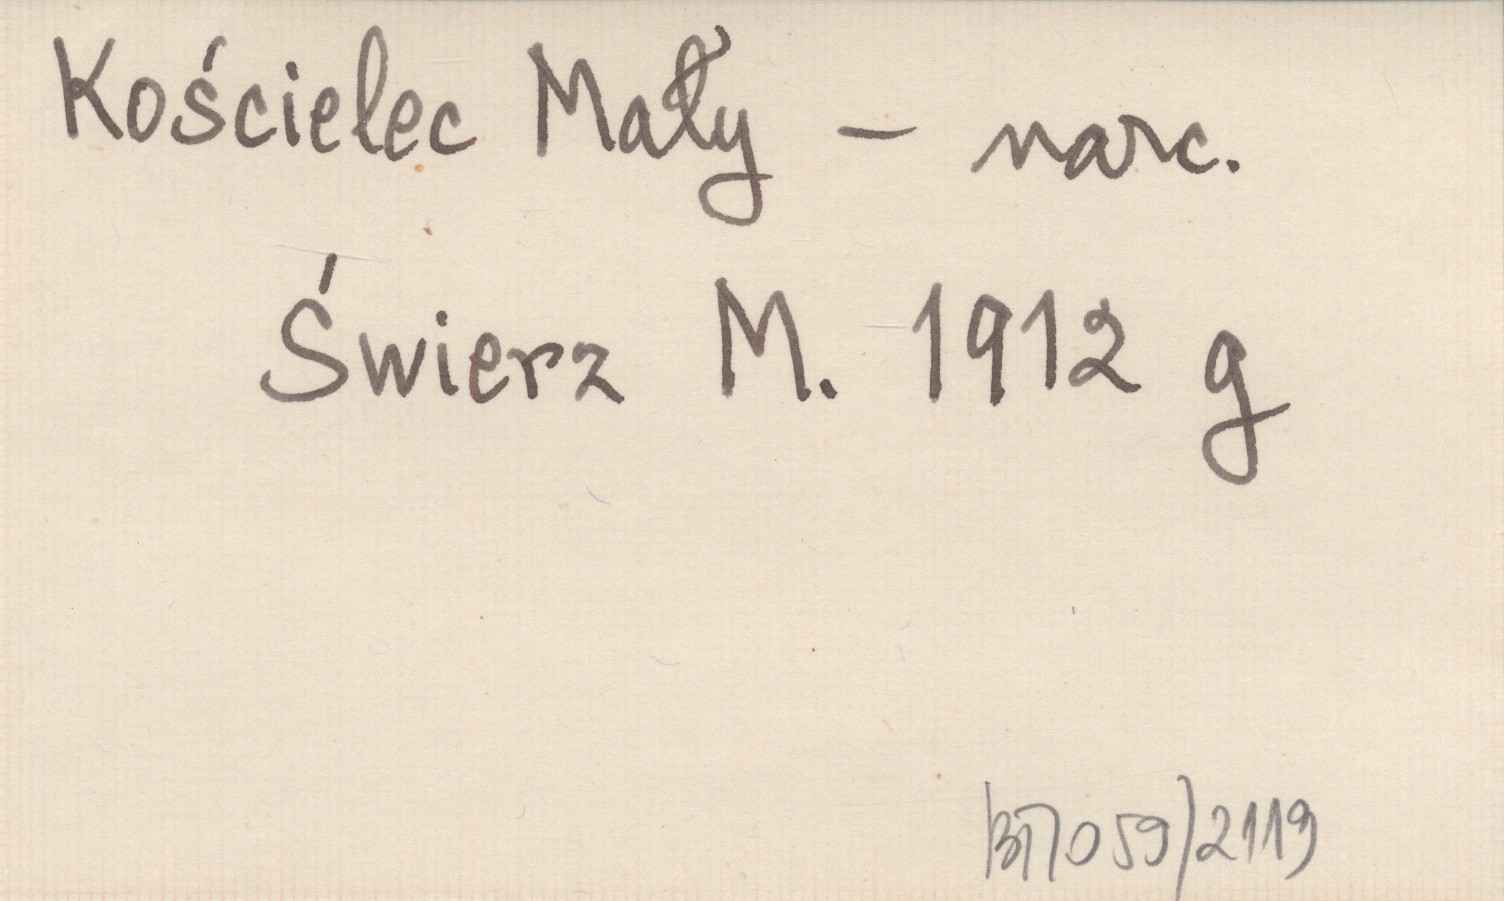 Kościelec Mały – narc.
Świerz M. 1912 g
059/2119